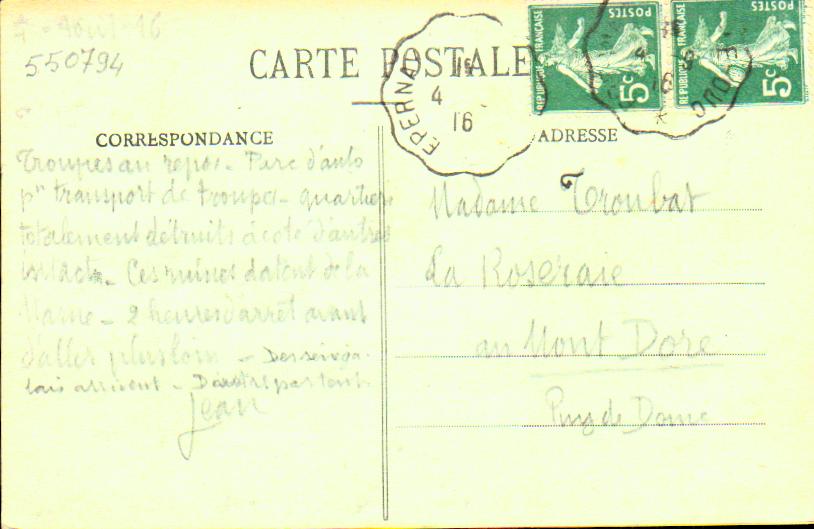 4 - Août 16
550794
CARTE POSTALE
EPERNAY
16
4
16
RÉPUBLIQUE FRANÇAISE
POSTES
5c
RÉPUBLIQUE
POSTES
5c
CORRESPONDANCE
ADRESSE
Troupes au repos - Parc d'auto
pr transport de troupes - quartiers
totalement détruits à côté d'autres
intacts - Ces ruines datent de la
Marne - 2 heures d'arrêt avant
d'aller plus loin - Des sénéga-
lais arrivent - partout.
Jean
Madame Troubat
La Roseraie
au Mont Dore
Puy de Dome